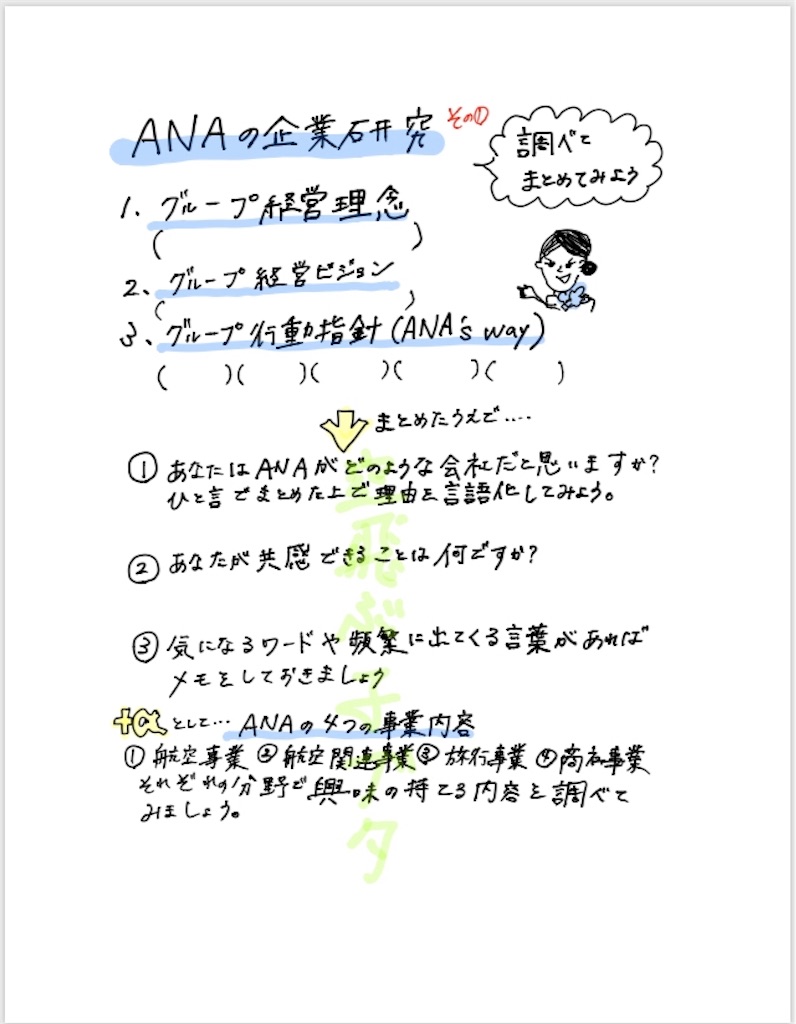 ANAの企業研究 その①
調べて
まとめてみよう
1. グループ経営理念
( )
2、グループ経営ビジョン
( )
3、グループ行動指針(ANA's way)
( )( )( )( )( )
まとめたうえで‥‥
① あなたはANAがどのような会社だと思いますか?
ひと言でまとめた上で理由を言語化してみよう。
② あなたが共感できることは何ですか?
③ 気になるワードや頻繁に出てくる言葉があれば
メモをしておきましょう
+αとして… ANAの4つの事業内容
① 航空事業 ② 航空関連事業 ③ 旅行事業 ④ 商社事業
それぞれの分野で興味の持てる内容を調べて
みましょう。
空飛ぶブタ